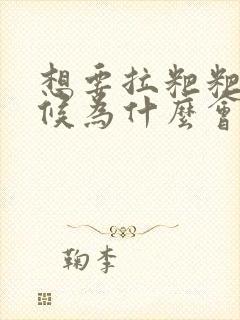 想要拉粑粑
候為什麼會
鞠李